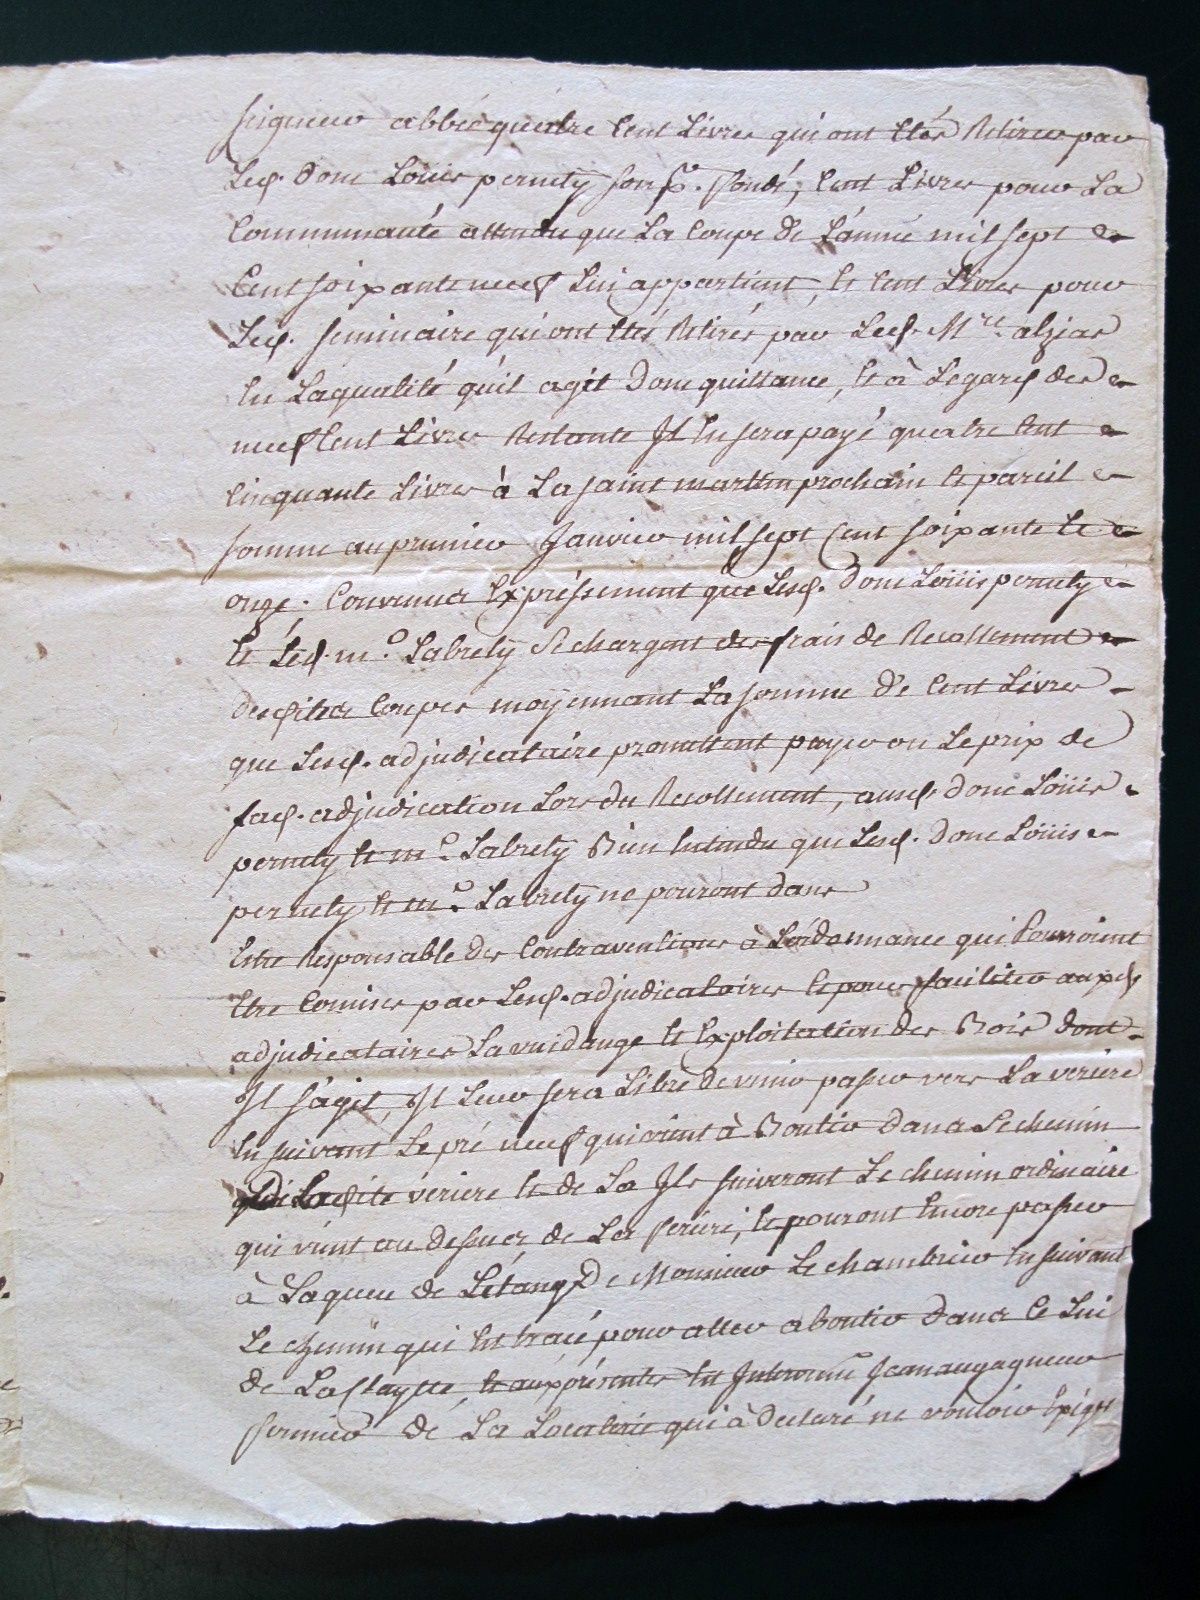 seigneur abbé quatre cent Livres qui ont étés Retirés par
Led. Dom Louis pernety son p.r fondé, cent Livres pour La
Communauté attendu que La Coupe de L'année mil sept
Cent soixante neuf Lui appartient, et cent Livres pour
Led. seminaire qui ont étés Retirés par Led. M.re alzias
en Laqualité qu'il agit Dont quittance, et à Legard des
neuf cent Livres Restante Il en sera payé quatre cent
cinquante Livres à La saint martin prochain et pareil
somme au premier Janvier mil sept Cent soixante et
onze. Convenu Expréssement que Lesd. Dom Louis pernety
et Led. m.e Labrely Se chargent des frais de Recollement
desdites Coupes moÿennant La somme de Cent Livres
que Lesd. adjudicataire promettent payer ou Le prix de
lad. adjudication Lors du Recollement, ausd. Dom Louis
pernety et m.e Labrely Bien Entendu que Lesd. Dom Louis
pernety et m.e Labrely ne pouront dans
Etre Responsable Des Contraventions à Lórdonnance qui Pourroient
Etre Comises par Lesd. adjudicataires et pour faciliter auxd.
adjudicataires La vuidange et Exploitation des Bois dont
Il s'agit, Il Leur sera Libre de venir passer vers La veriere
En suivant Le pré neuf qui vient à Boutir Dans Le chemin
de Ladite veriere et de La Ils suiveront Le chemin ordinaire
qui vient au Dessus de La, et pouront Encore passer
à Laqueu de Létang De Monsieur Le chambrier En suivant
Le chemin qui est tracé pour aller aboutir Dans Celui
de La, et aux présentes est Intervenu Jean
fermier de La qui à Declaré ne vouloir Exiger